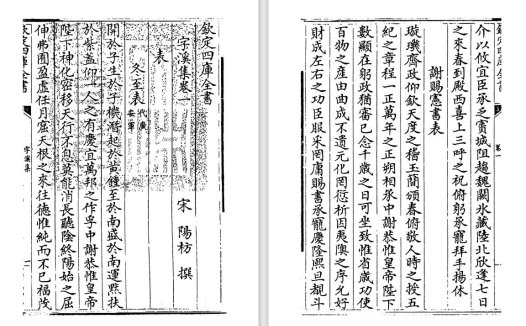 欽定四庫全書
字溪集卷一
宋 陽枋 撰
表
冬至表 代廣安軍
開於子生於子機潛起於黃鍾至於南盡於南運熙扶
於紫蓋仰一人之有慶宜萬邦之作孚中謝恭惟皇帝
陛下神化密移天行不息莫能消長聽陰終陽始之屈
伸弗囿盈虛任月窟天根之來往德惟純而不已福茂
欽定四庫全書
字溪集
介以攸宜臣承乏賨城阻趨魏闕水藏陸北欣逢七日
之來春到殿西喜上三呼之祝俯躬承寵拜手揚休
謝賜憲書表
璇璣齊政仰欽天度之稽玉蕳頒春俯敬人時之授五
紀之章程一正萬年之正朔相承中謝恭惟皇帝陛下
數顯在躬政猶審已念千歲之日可坐致惟省歲功使
百物之産由曲成不遺元化罔愆析因夷隩之序允好
財成左右之功臣服采罔庸賜書承寵慶隆熙旦覩斗